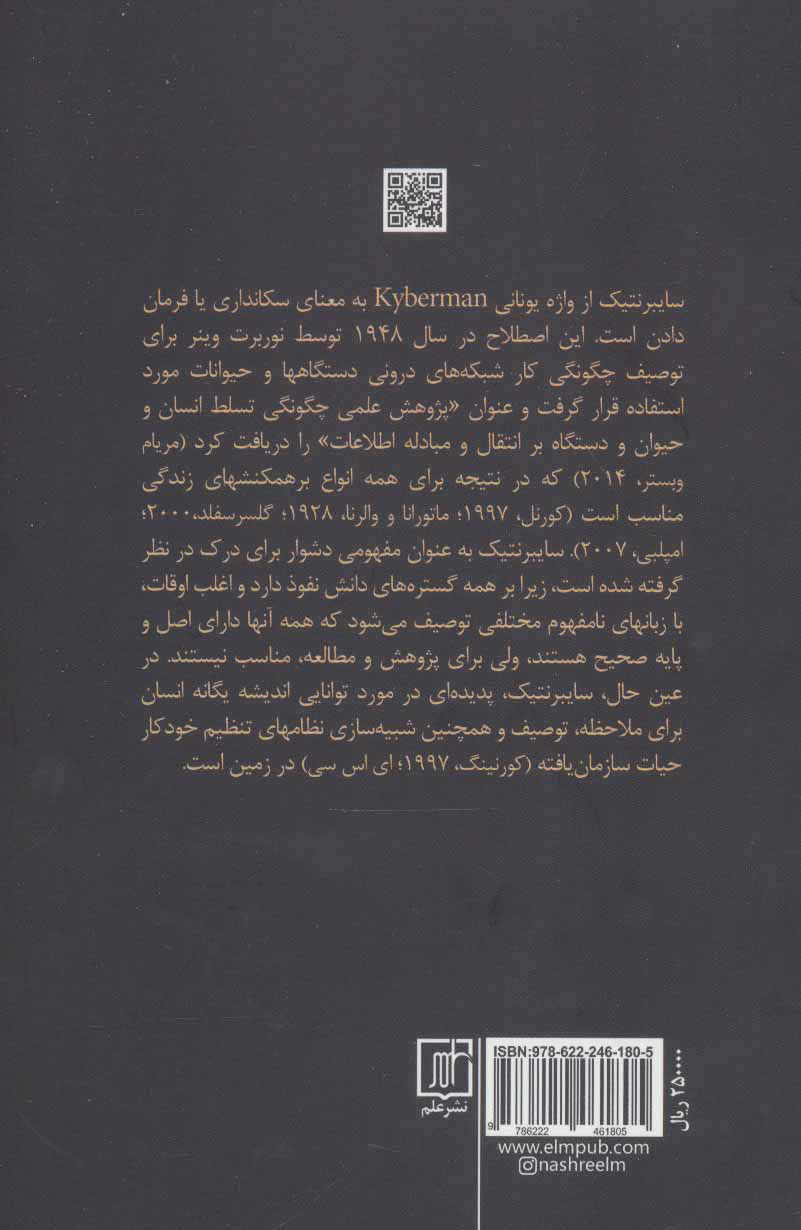 سایبرنتیک از واژه یونانی Kyberman به معنای سکانداری یا فرمان
دادن است. این اصطلاح در سال ۱۹۴۸ توسط نوربرت وینر برای
توصیف چگونگی کار شبکه‌های درونی دستگاهها و حیوانات مورد
استفاده قرار گرفت و عنوان «پژوهش علمی چگونگی تسلط انسان و
حیوان و دستگاه بر انتقال و مبادله اطلاعات» را دریافت کرد (مریام
وبستر، ۲۰۱۴) که در نتیجه برای همه انواع برهمکنشهای زندگی
مناسب است (کورنل، ۱۹۹۷؛ ماتورانا و والرنا، ۱۹۲۸؛ گلسرسفلد،۲۰۰۰؛
امپلبی، ۲۰۰۷). سایبرنتیک به عنوان مفهومی دشوار برای درک در نظر
گرفته شده است، زیرا بر همه گستره‌های دانش نفوذ دارد و اغلب اوقات،
با زبانهای نامفهوم مختلفی توصیف می‌شود که همه آنها دارای اصل و
پایه صحیح هستند، ولی برای پژوهش و مطالعه، مناسب نیستند. در
عین حال، سایبرنتیک، پدیده‌ای در مورد توانایی اندیشه یگانه انسان
برای ملاحظه، توصیف و همچنین شبیه‌سازی نظامهای تنظیم خودکار
حیات سازمان‌یافته (کورنینگ، ۱۹۹۷؛ ای اس سی) در زمین است.
ISBN:978-622-246-180-5
9 786222 461805
۲۵۰۰۰۰ ریال
www.elmpub.com
nashreelm
علم
نشرعلم